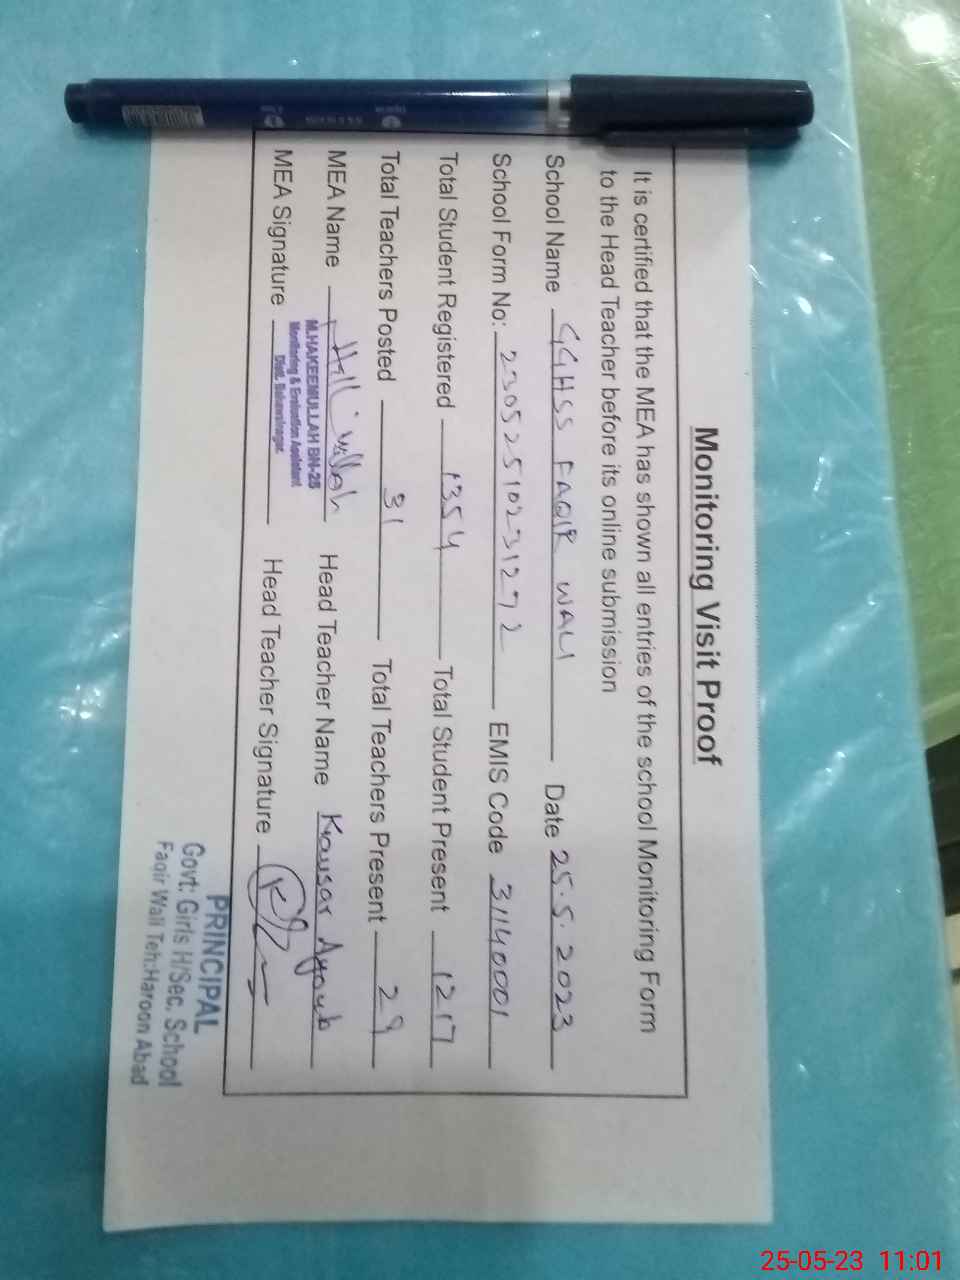 Monitoring Visit Proof
It is certified that the MEA has shown all entries of the school Monitoring Form
to the Head Teacher before its online submission
School Name GGHSS FAQIR WALI Date 25.5.2023
School Form No: 23052510231272 EMIS Code 31140001
Total Student Registered 1354 Total Student Present 1217
Total Teachers Posted 31 Total Teachers Present 29
MEA Name Head Teacher Name Kausar Ayoub
M.HAKEEMULLAH BN-25
Monitoring & Evaluation Assistant
Distt. Bahawalnagar.
MEA Signature Head Teacher Signature
PRINCIPAL
Govt: Girls H/Sec. School
Faqir Wali Teh:Haroon Abad
25-05-23 11:01